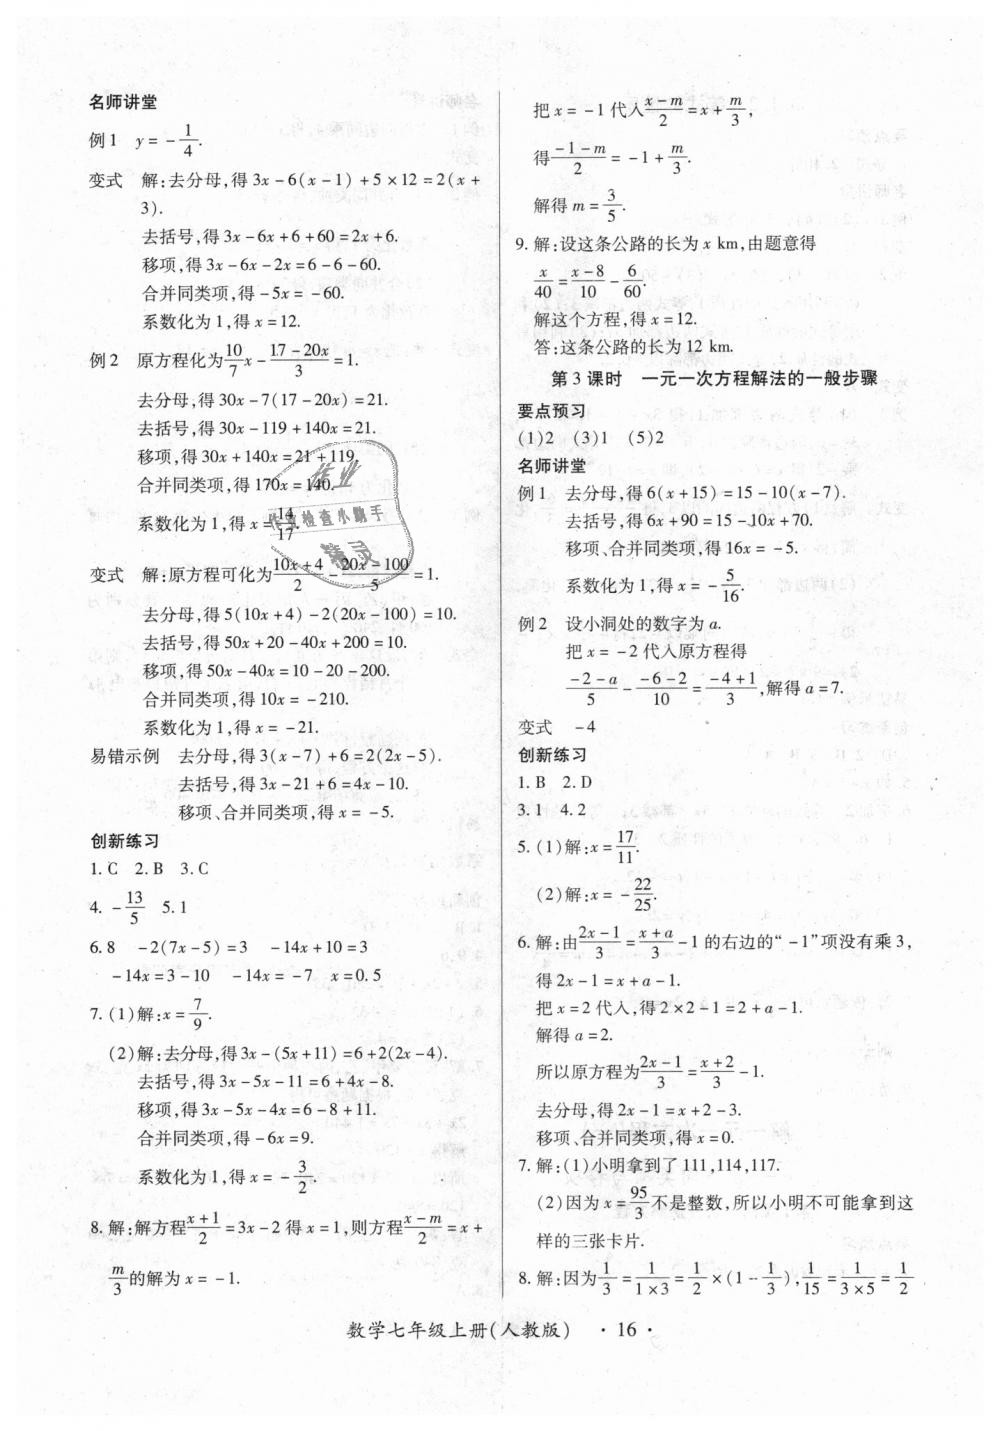 名师讲堂
例1 y = -1/4.
变式 解:去分母,得 3x-6(x-1)+5×12=2(x+
3).
去括号,得 3x-6x+6+60=2x+6.
移项,得 3x-6x-2x=6-6-60.
合并同类项,得 -5x=-60.
系数化为1,得 x=12.
例2 原方程化为 10/7 x - (17-20x)/3 = 1.
去分母,得 30x-7(17-20x)=21.
去括号,得 30x-119+140x=21.
移项,得 30x+140x=21+119.
合并同类项,得 170x=140.
系数化为1,得 x=14/17.
变式 解:原方程可化为 (10x+4)/2 - (20x-100)/5 = 1.
去分母,得 5(10x+4)-2(20x-100)=10.
去括号,得 50x+20-40x+200=10.
移项,得 50x-40x=10-20-200.
合并同类项,得 10x=-210.
系数化为1,得 x=-21.
易错示例 去分母,得 3(x-7)+6=2(2x-5).
去括号,得 3x-21+6=4x-10.
移项、合并同类项,得 x=-5.
创新练习
1. C 2. B 3. C
4. -13/5 5. 1
6. 8 -2(7x-5)=3 -14x+10=3
-14x=3-10 -14x=-7 x=0.5
7. (1)解:x=7/9.
(2)解:去分母,得 3x-(5x+11)=6+2(2x-4).
去括号,得 3x-5x-11=6+4x-8.
移项,得 3x-5x-4x=6-8+11.
合并同类项,得 -6x=9.
系数化为1,得 x=-3/2.
8. 解:解方程 (x+1)/2=3x-2 得 x=1,则方程 (x-m)/2=x+
m/3 的解为 x=-1.
把 x=-1 代入 (x-m)/2=x+m/3,
得 (-1-m)/2=-1+m/3.
解得 m=3/5.
9. 解:设这条公路的长为 x km,由题意得
x/40=(x-8)/10-6/60.
解这个方程,得 x=12.
答:这条公路的长为 12 km.
第3课时 一元一次方程解法的一般步骤
要点预习
(1)2 (3)1 (5)2
名师讲堂
例1 去分母,得 6(x+15)=15-10(x-7).
去括号,得 6x+90=15-10x+70.
移项、合并同类项,得 16x=-5.
系数化为1,得 x=-5/16.
例2 设小洞处的数字为 a.
把 x=-2 代入原方程得
(-2-a)/5-(-6-2)/10=(-4+1)/3,解得 a=7.
变式 -4
创新练习
1. B 2. D
3. 1 4. 2
5. (1)解:x=17/11.
(2)解:x=-22/25.
6. 解:由 (2x-1)/3=(x+a)/3-1 的右边的“-1”项没有乘3,
得 2x-1=x+a-1.
把 x=2 代入,得 2×2-1=2+a-1.
解得 a=2.
所以原方程为 (2x-1)/3=(x+2)/3-1.
去分母,得 2x-1=x+2-3.
移项、合并同类项,得 x=0.
7. 解:(1)小明拿到了 111,114,117.
(2)因为 x=95/3 不是整数,所以小明不可能拿到这
样的三张卡片.
8. 解:因为 1/3=1/(1×3)=1/2×(1-1/3),1/15=1/(3×5)=1/2
数学七年级上册(人教版) ·16·
作业
作业检查小助手